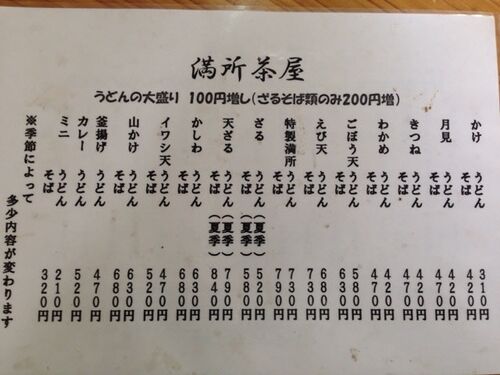 満所茶屋
うどんの大盛り 100円増し(ざるそば類のみ200円増)
かけ うどん 310円
そば 420円
月見 うどん 420円
そば 470円
きつね うどん 420円
そば 470円
わかめ うどん 420円
そば 470円
ごぼう天 うどん 580円
そば 630円
えび天 うどん 680円
そば 730円
特製満所 うどん 730円
そば 790円
ざる うどん(夏季) 520円
そば(夏季) 580円
天ざる うどん(夏季) 790円
そば(夏季) 840円
かしわ うどん 630円
そば 680円
イワシ天 うどん 470円
そば 520円
山かけ うどん 630円
そば 680円
釜揚げ うどん 470円
カレー うどん 520円
ミニ うどん 210円
そば 320円
※季節によって
多少内容が変わります